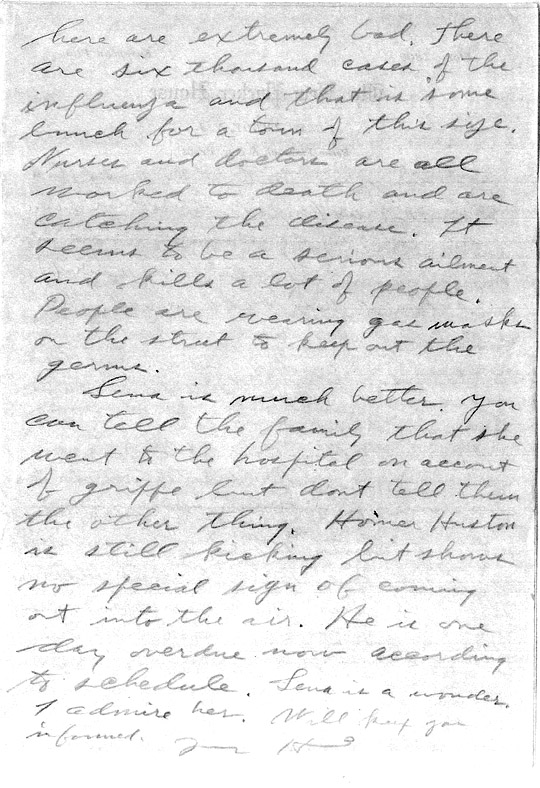 here are extremely bad. There
are six thousand cases of the
influenza and that is some
bunch for a town of this size.
Nurses and doctors are all
worked to death and are
catching the disease. It
seems to be a serious ailment
and kills a lot of people.
People are wearing gas masks
on the street to keep out the
germs.
Lena is much better. You
can tell the family that she
went to the hospital on account
of grippe but dont tell them
the other thing. Homer Huston
is still kicking but shows
no special sign of coming
out into the air. He is one
day overdue now according
to schedule. Lena is a wonder.
I admire her. Will keep you
informed.